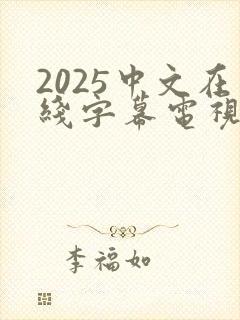 2025中文在
綫字幕電視
李福如